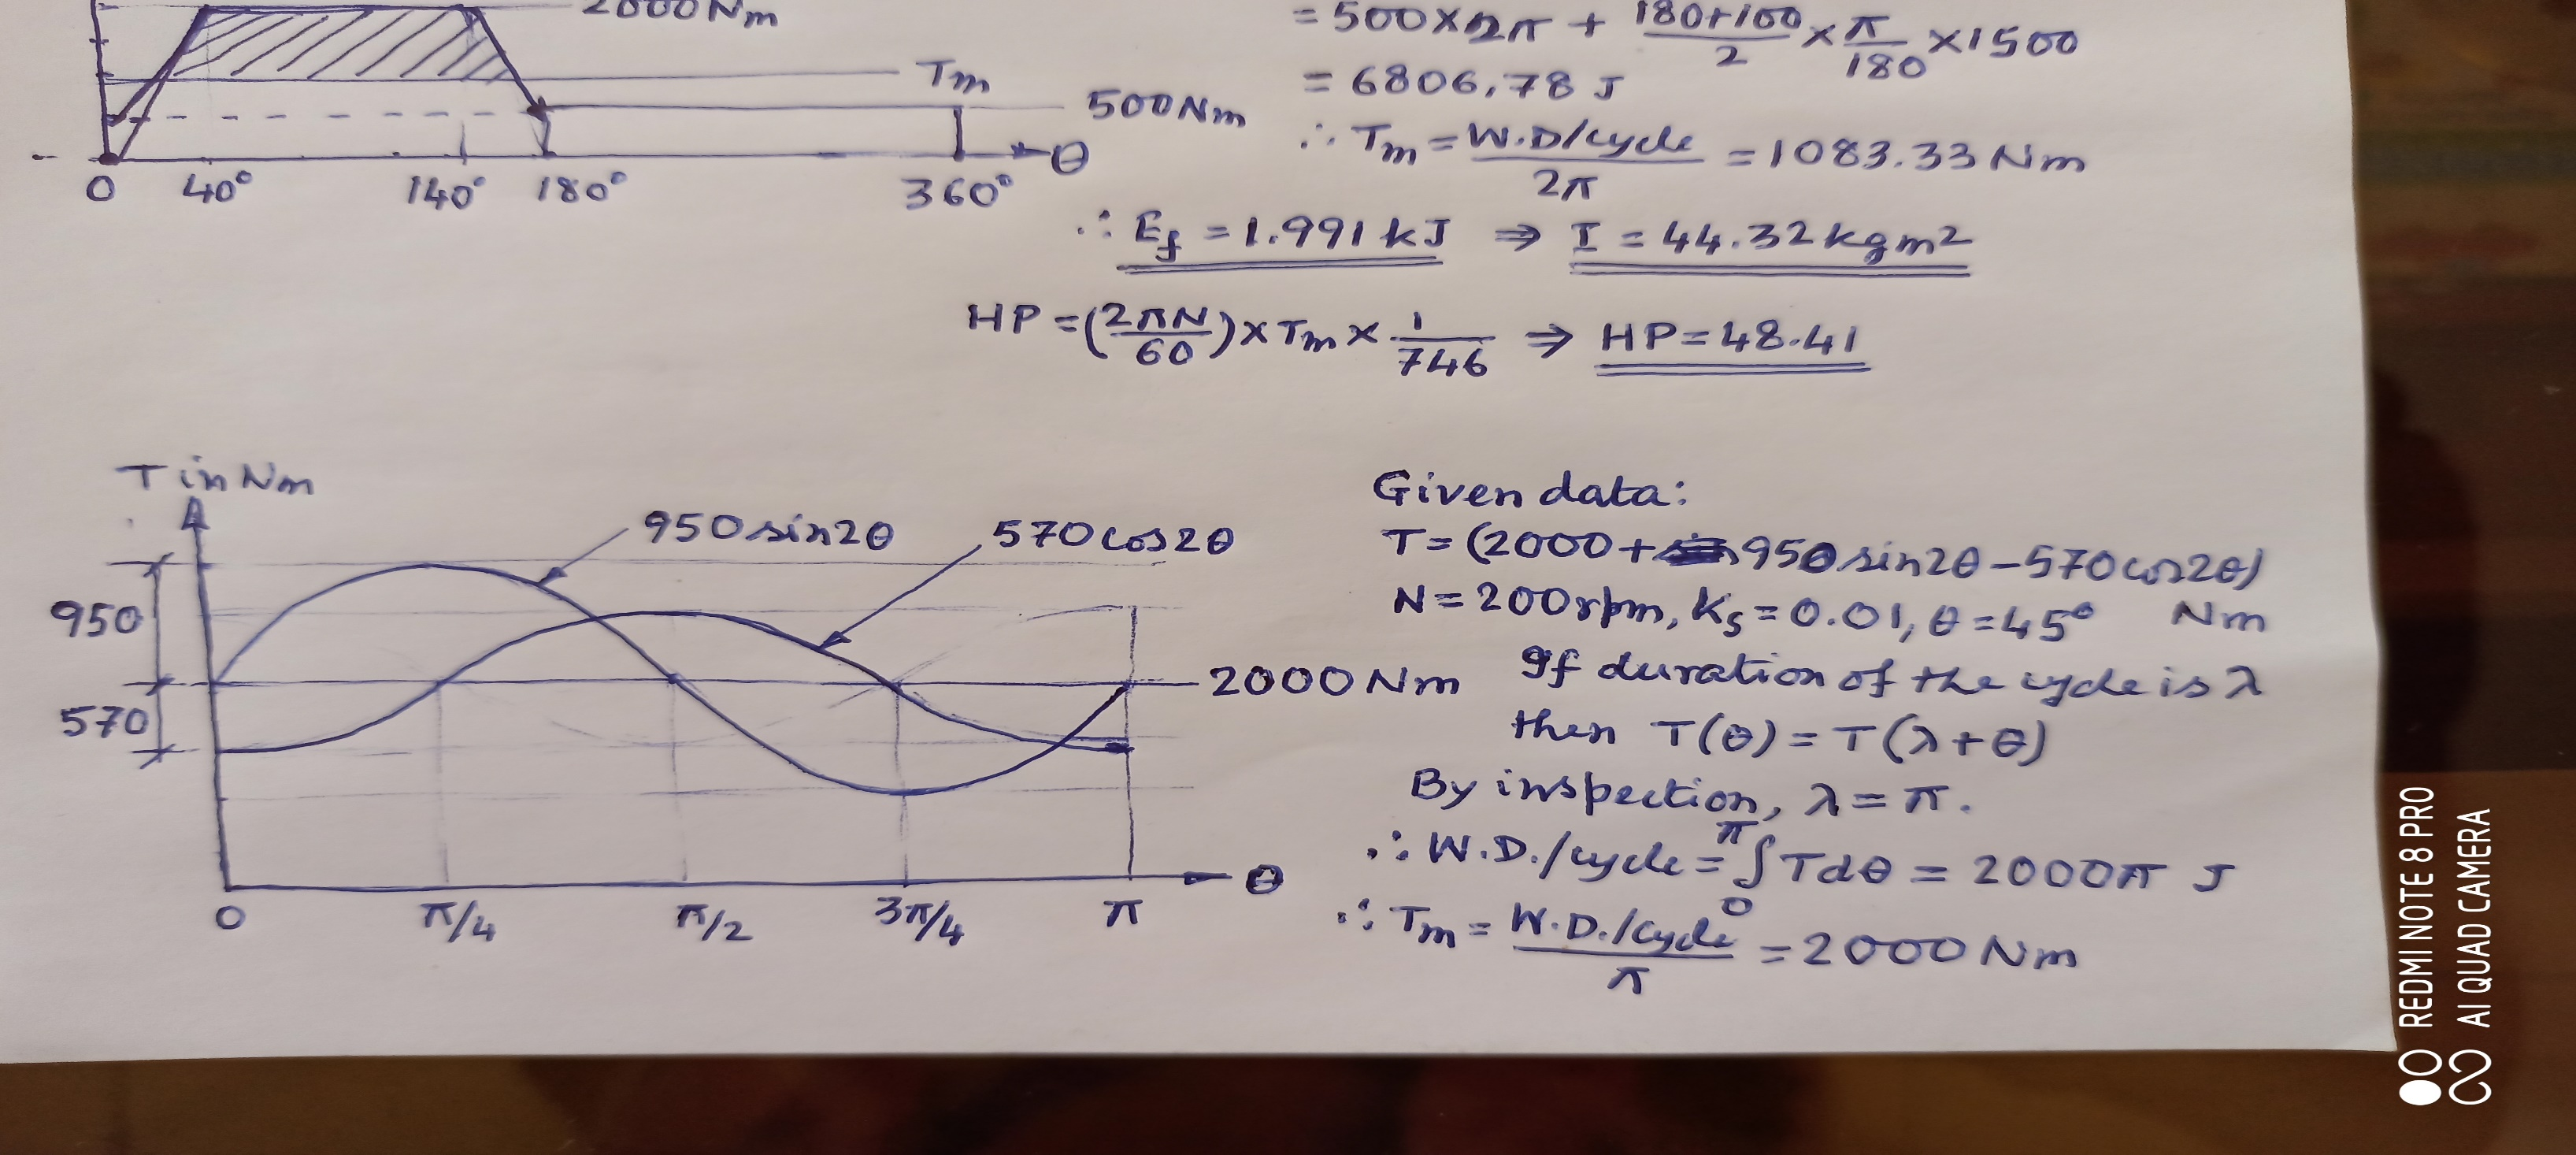 2000 Nm
Tm
500 Nm
θ
0 40° 140° 180° 360°
= 500 × 2π + 180+100/2 × π/180 × 1500
= 6806.78 J
∴ Tm = W.D/cycle / 2π = 1083.33 Nm
∴ Ef = 1.991 kJ ⇒ I = 44.32 kgm²
HP = (2πN/60) × Tm × 1/746 ⇒ HP = 48.41
T in Nm
950 sin2θ
570 cos2θ
950
570
2000 Nm
θ
0 π/4 π/2 3π/4 π
Given data:
T = (2000 + 950 sin2θ − 570 cos2θ)
N = 200 rpm, Ks = 0.01, θ = 45° Nm
If duration of the cycle is λ
then T(θ) = T(λ+θ)
By inspection, λ = π.
∴ W.D./cycle = ∫₀^π T dθ = 2000π J
∴ Tm = W.D./cycle / π = 2000 Nm
REDMI NOTE 8 PRO
AI QUAD CAMERA